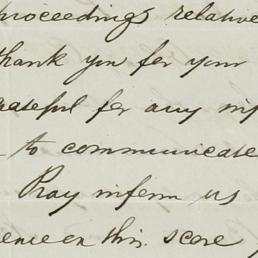 proceedings relative
thank you for your
grateful for any inf
to communicate
Pray inform us
ence on this score